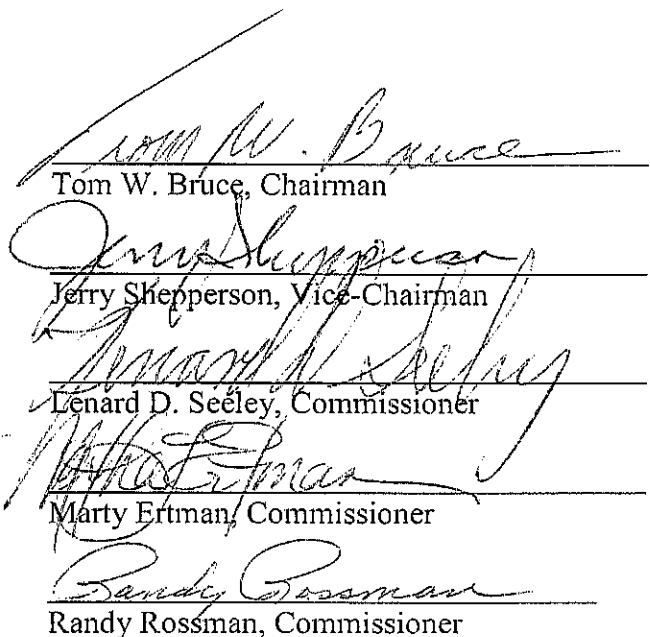 Tom W. Bruce
Tom W. Bruce, Chairman
Jerry Shepperson
Jerry Shepperson, Vice-Chairman
Lenard D. Seeley
Lenard D. Seeley, Commissioner
Ertman
Marty Ertman, Commissioner
Randy Rossman
Randy Rossman, Commissioner